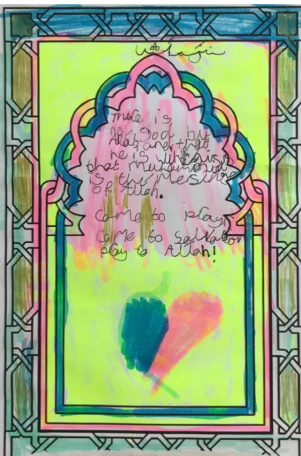 There is
no god but
Allah and that
he is
that Muhammad
is the Mesinre
OF Allah.
Come to play,
come to Salvation
play to Allah!